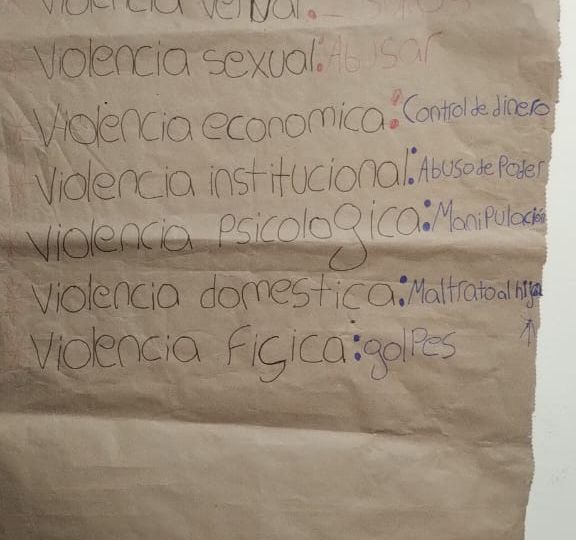 Violencia verbal:
Violencia sexual: Abusar
Violencia economica: Control de dinero
Violencia institucional: Abuso de Poder
Violencia Psicologica: Manipulación
Violencia domestica: Maltrato al hija
Violencia Fisica: golpes